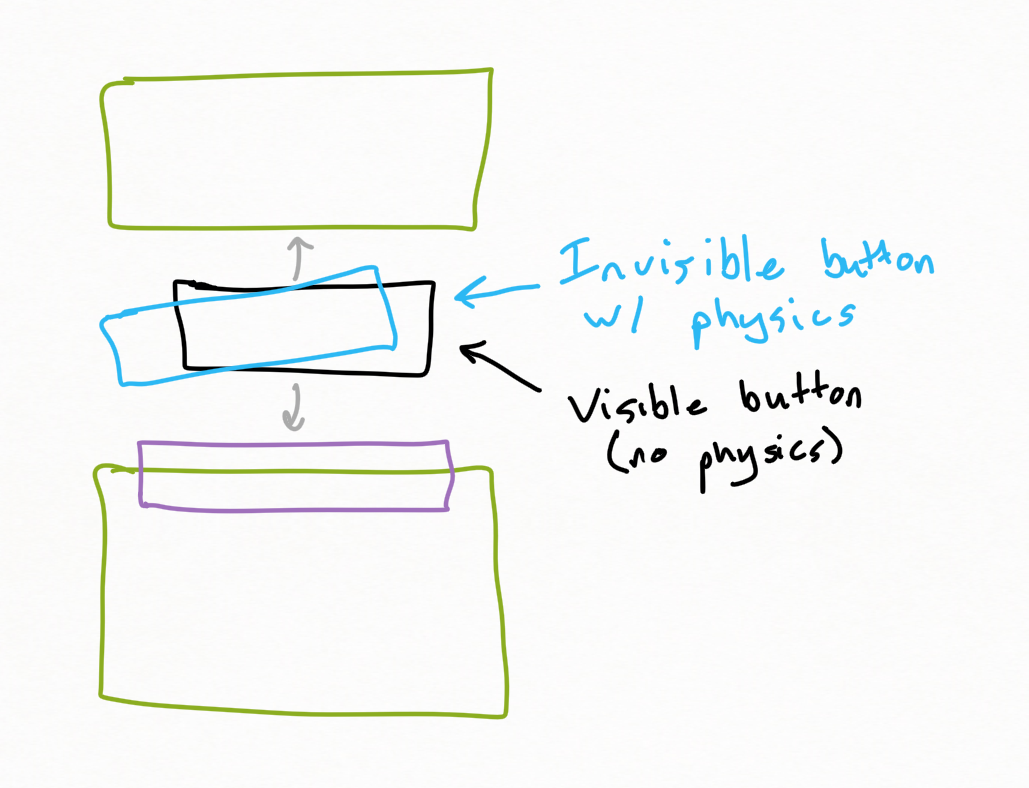 Invisible button
w/ physics
Visible button
(no physics)